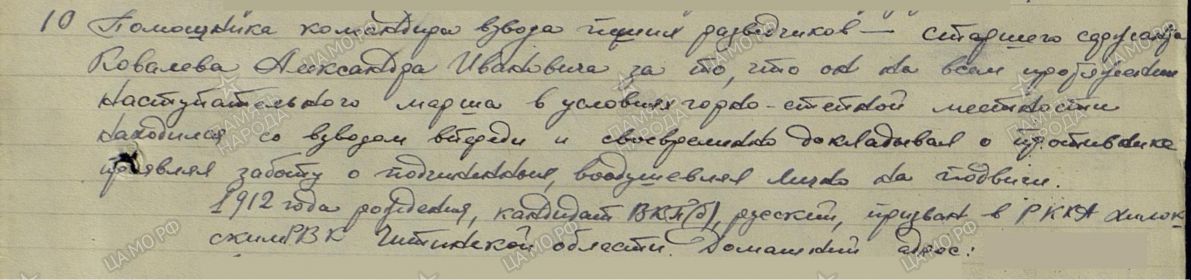 10 Помощника командира взвода пеших разведчиков — старшего сержанта
Ковалева Александра Ивановича за то, что он на всем протяжении
наступательного марша в условиях горно-степной местности
находился со взводом впереди и своевременно докладывал о противнике
проявлял заботу о подчиненных, воодушевлял лично на подвиги.
1912 года рождения, кандидат ВКП(б), русский, призван в РККА Хилок-
ским РВК Читинской области. Домашний адрес: